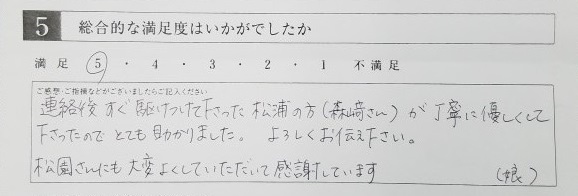 5 総合的な満足度はいかがでしたか
満足 5・4・3・2・1 不満足
ご感想・ご指摘などがございましたらご記入ください
連絡後すぐ駆けつけて下さった松浦の方(森﨑さん)が丁寧に優しくして
下さったのでとても助かりました。 よろしくお伝え下さい。
松園さんにも大変よくしていただいて感謝しています (娘)